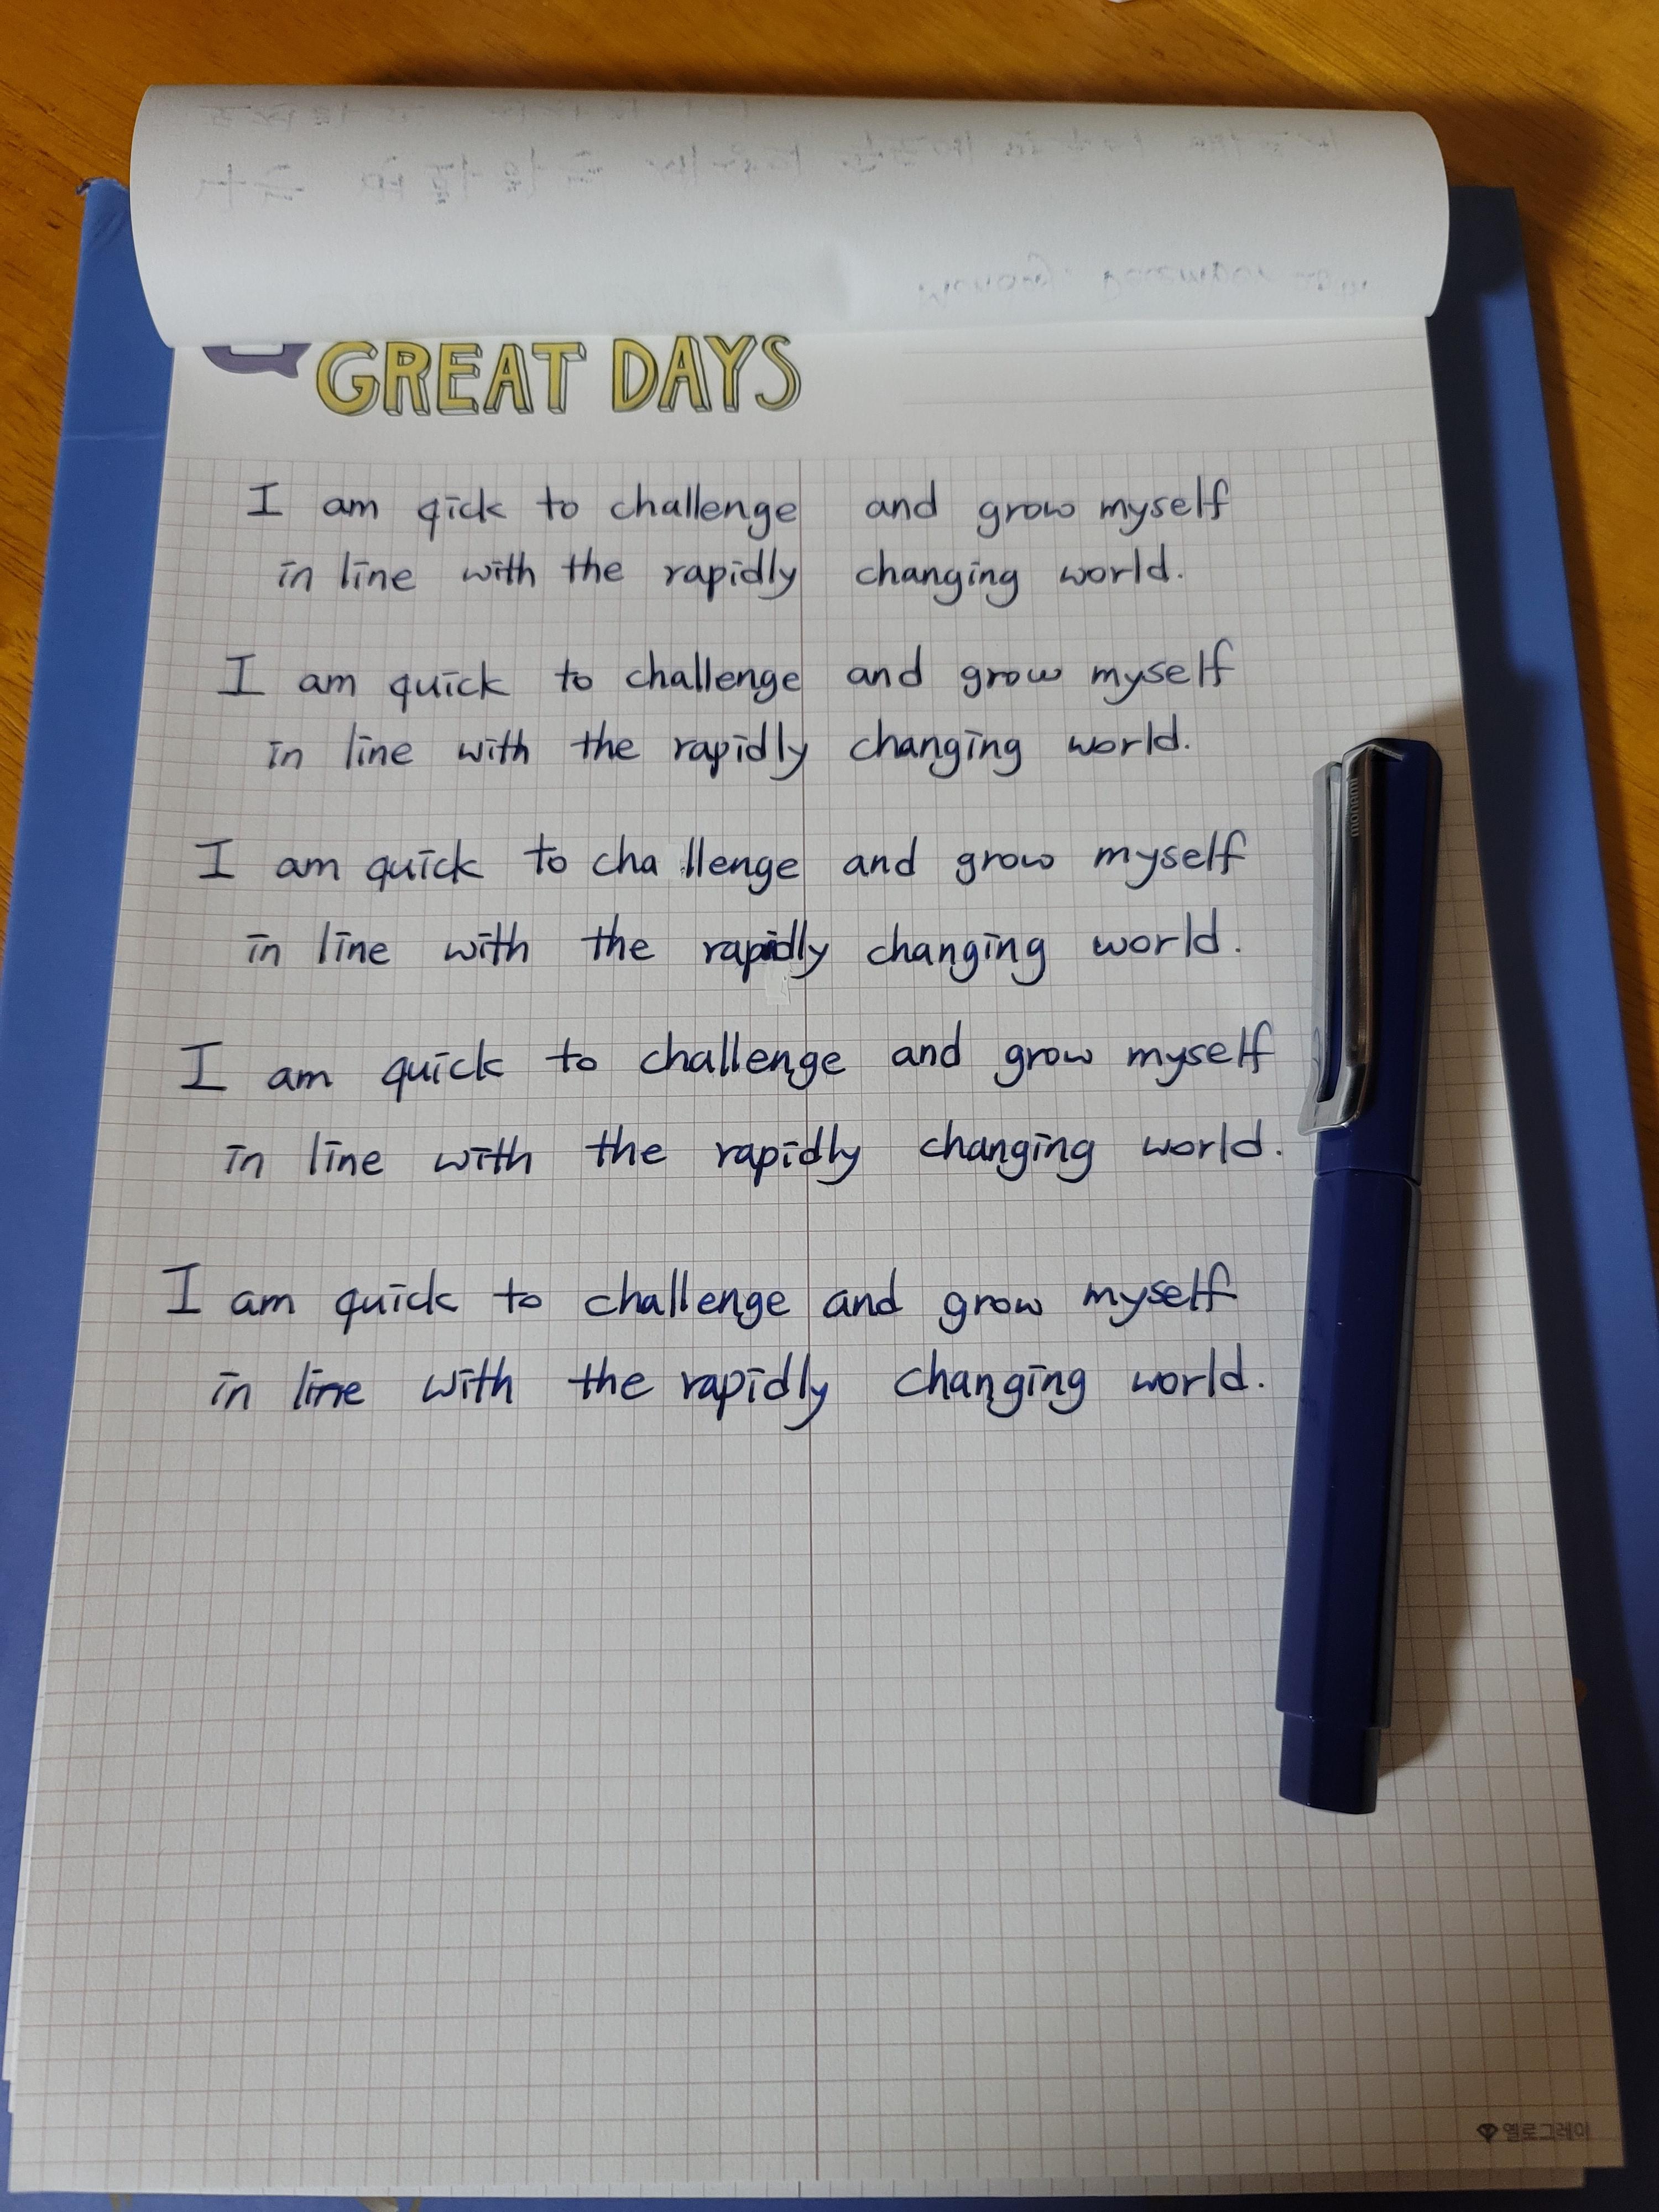 GREAT DAYS
I am qick to challenge and grow myself
in line with the rapidly changing world.
I am quick to challenge and grow myself
in line with the rapidly changing world.
I am quick to cha llenge and grow myself
in line with the rapidly changing world.
I am quick to challenge and grow myself
in line with the rapidly changing world.
I am quick to challenge and grow myself
in line with the rapidly changing world.
monami
옐로그레이